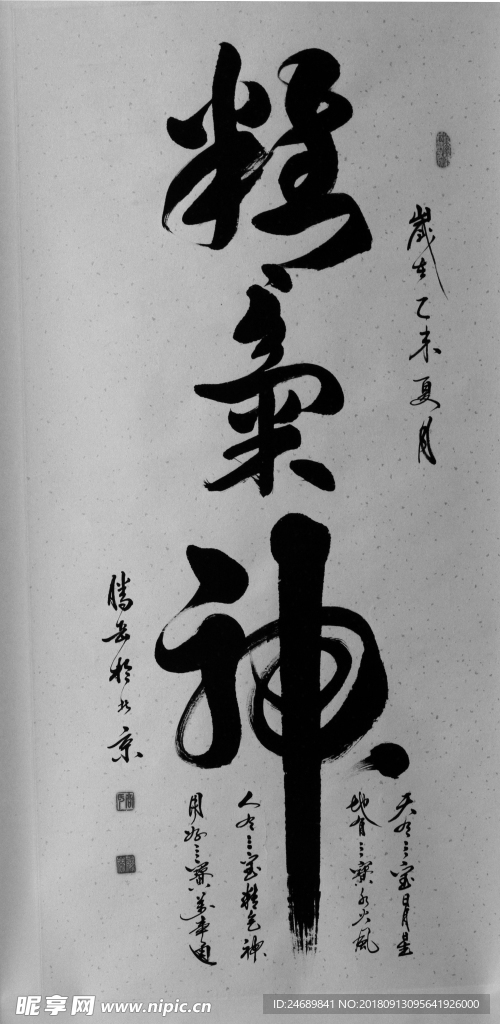 歲在乙未夏月
精氣神
天有三宝日月星
地有三寶水火風
人有三宝精气神
用好三寶萬事通
腾岳於北京
昵享网 www.nipic.cn
ID:24689841 NO:20180913095641926000